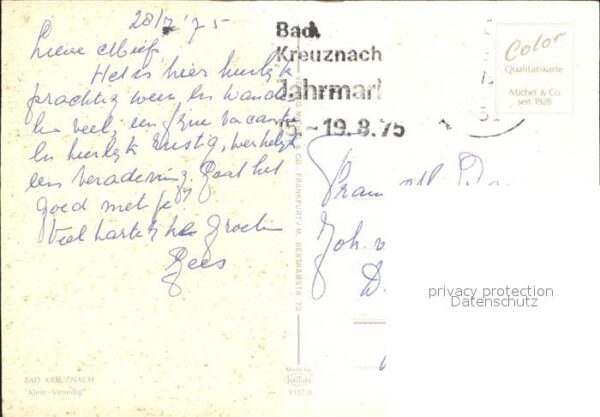 28/7 '75
Lieve Miep,
Het is hier heerlijk
prachtig weer en wande-
len veel, een fijne vacantie
en heerlijk rustig, werkelijk
een verademing. Gaat het
goed met je?
Veel hartelijke groeten
Bad
Kreuznach
Jahrmark
15.-19.8.75
Color
Qualitätskarte
Michel & Co
seit 1928
& CO FRANKFURT/M.
73
Joh. v
D
privacy protection
Datenschutz
Made by
Krüger
BAD KREUZNACH
"Klein-Venedig"